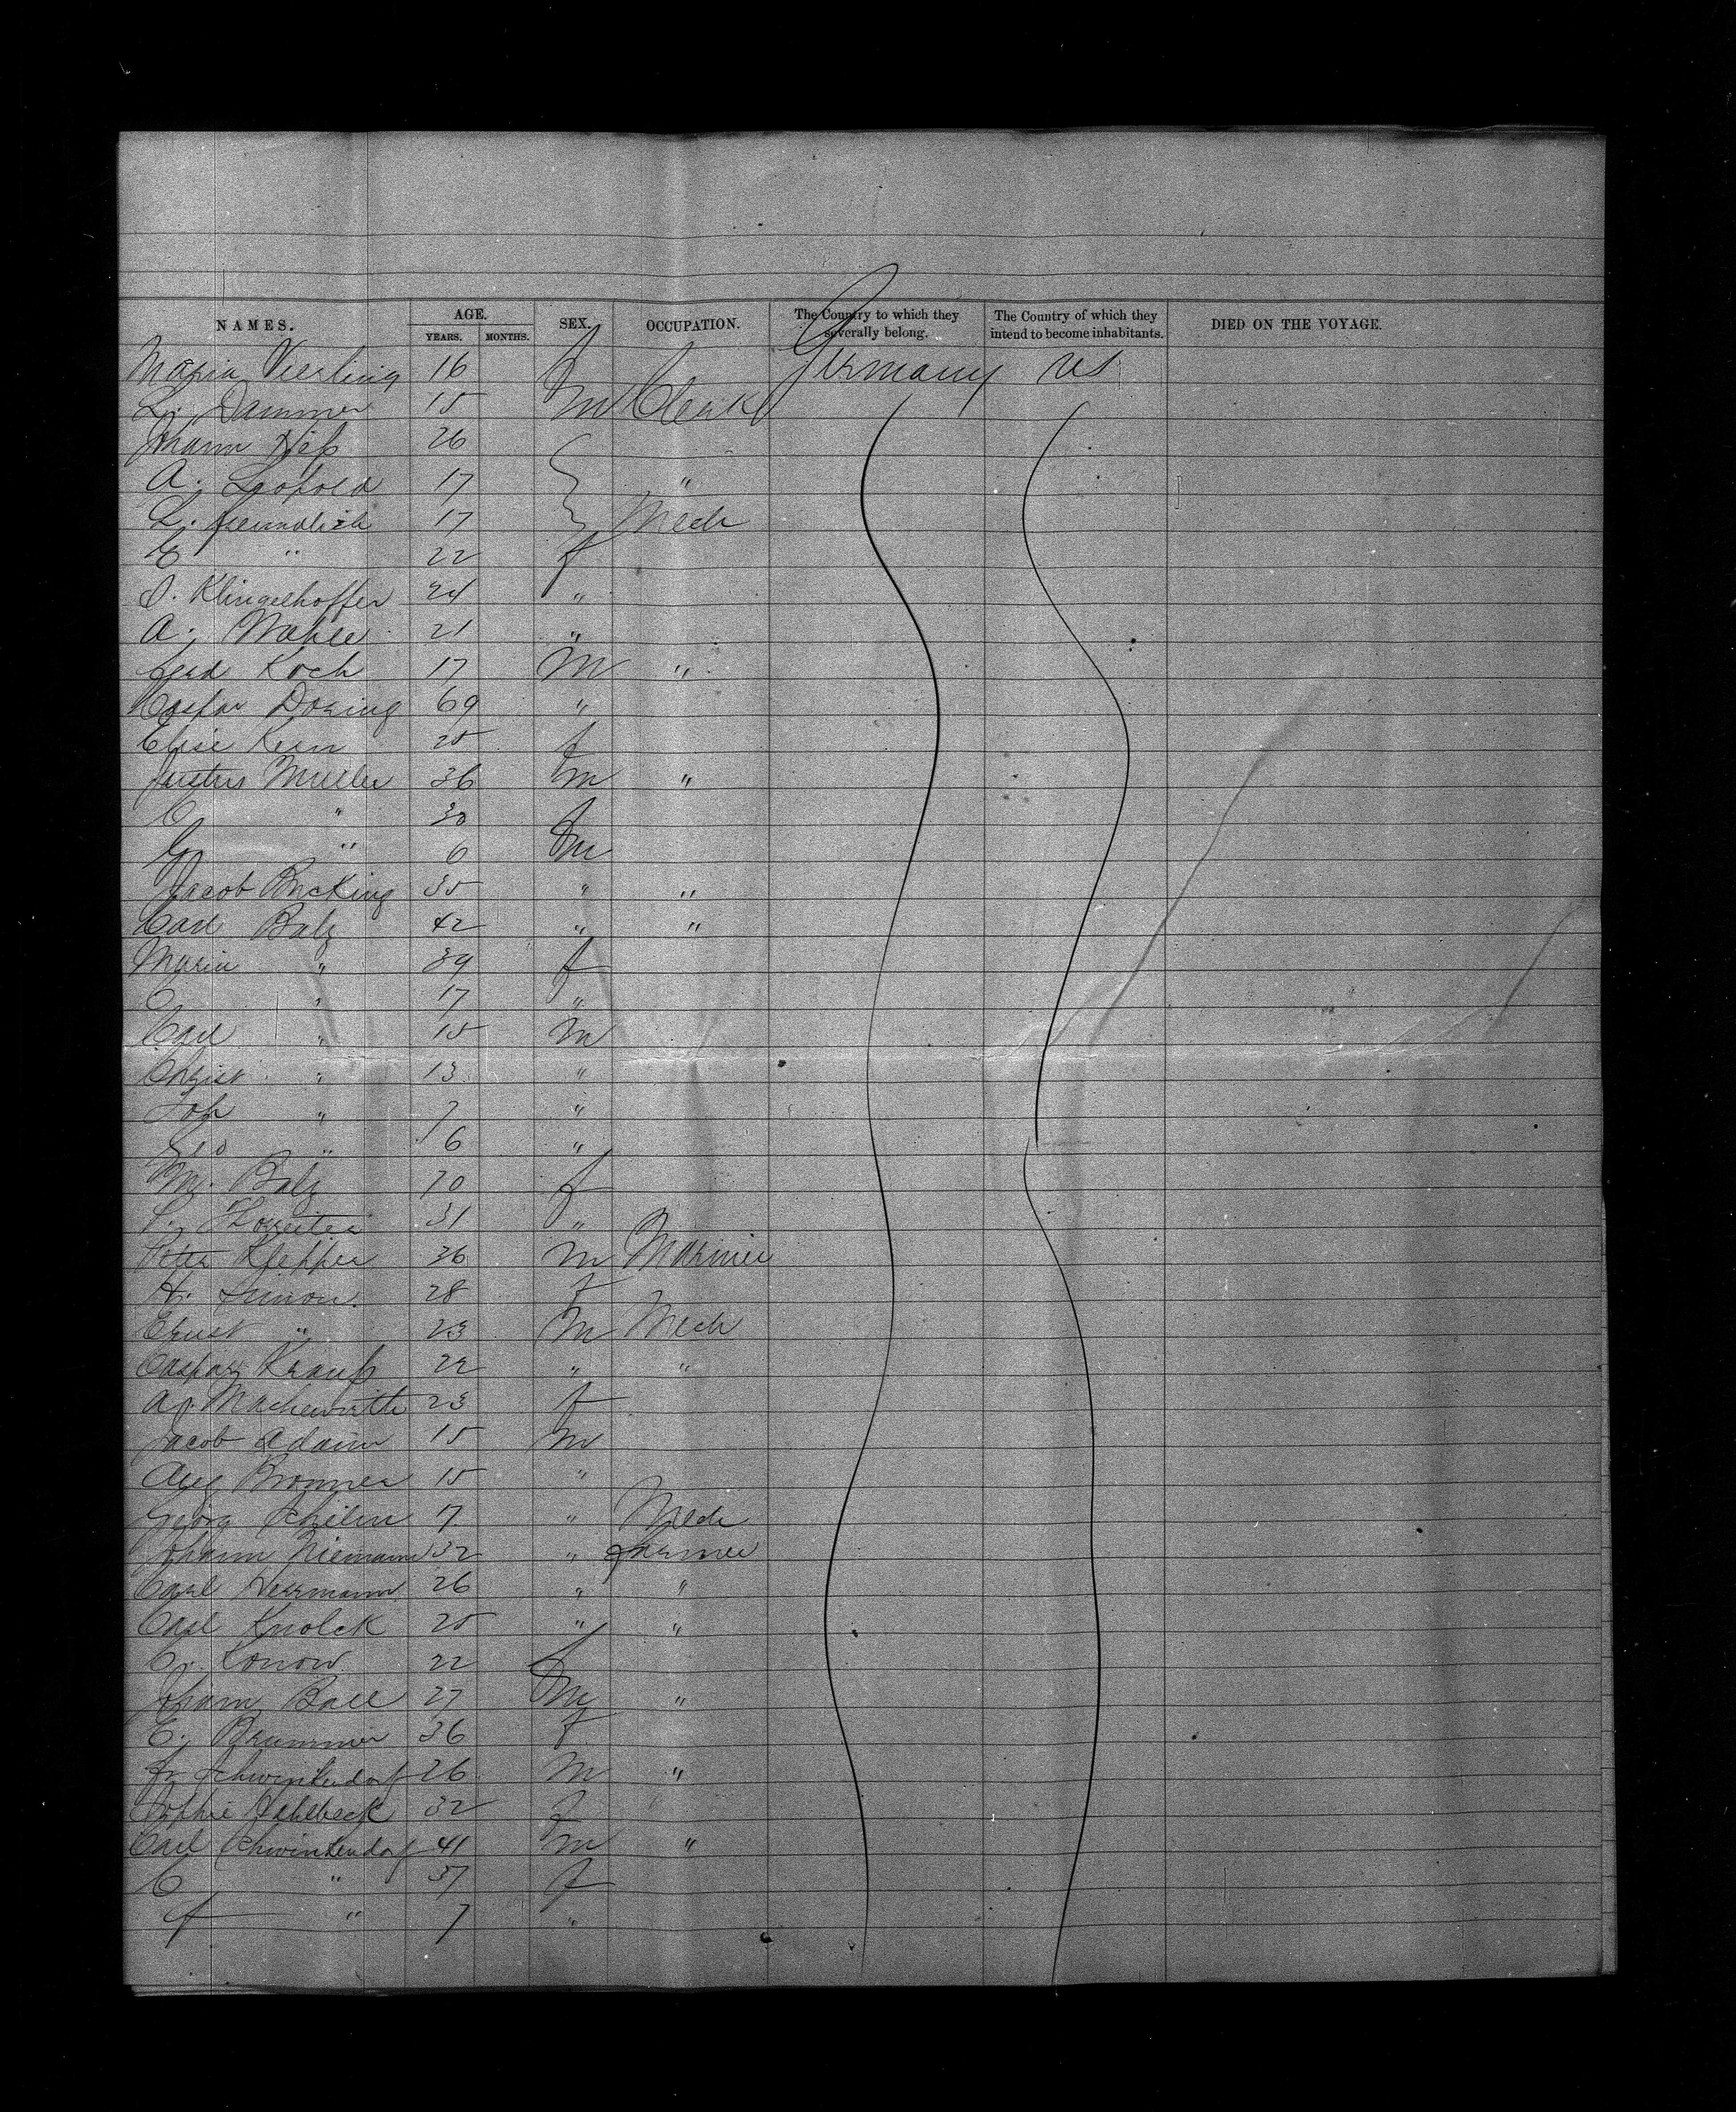 NAMES. AGE. YEARS. MONTHS. SEX. OCCUPATION. The Country to which they severally belong. The Country of which they intend to become inhabitants. DIED ON THE VOYAGE.
Maria Vierling 16 f Germany US
L. Dammer 15 m Clerk
Mann Heß 26
A. Leopold 17 "
L. Freundlich 17 Mech
E " 22 f
S. Klingelhoffer 24 "
A. Wahle 21 "
Ferd Koch 17 m "
Caspar Doring 69 "
Elise Kern 25 f
Justus Muller 36 m "
C " 30 f
G " 6 m
Jacob Bucking 35 " "
Carl Balz 42 " "
Maria " 39 f
C " 17 "
Carl " 15 m
Christ " 13 "
Joh " 7 "
Geo " 6 "
M. Balz 70 f
31 "
Peter Klepper 36 m Mariner
H. Simon 28 f
Ernst " 23 m Mech
Caspar Krauß 22 " "
A. Machewirth 23 f
Jacob Adam 15 m
Aug Bronner 15 "
Georg Schilin 17 " Mech
Johann Niemann 32 " Farmer
Carl Herrmann 26 " "
Carl Knolck 25 " "
C. Konow 22 f
Johann Ball 27 m "
C. Brummer 36 f
Fr Schwinkendorf 26 m "
Sophie 32 f
Carl Schwinkendorf 41 m "
C " 37 f
F " 7 "